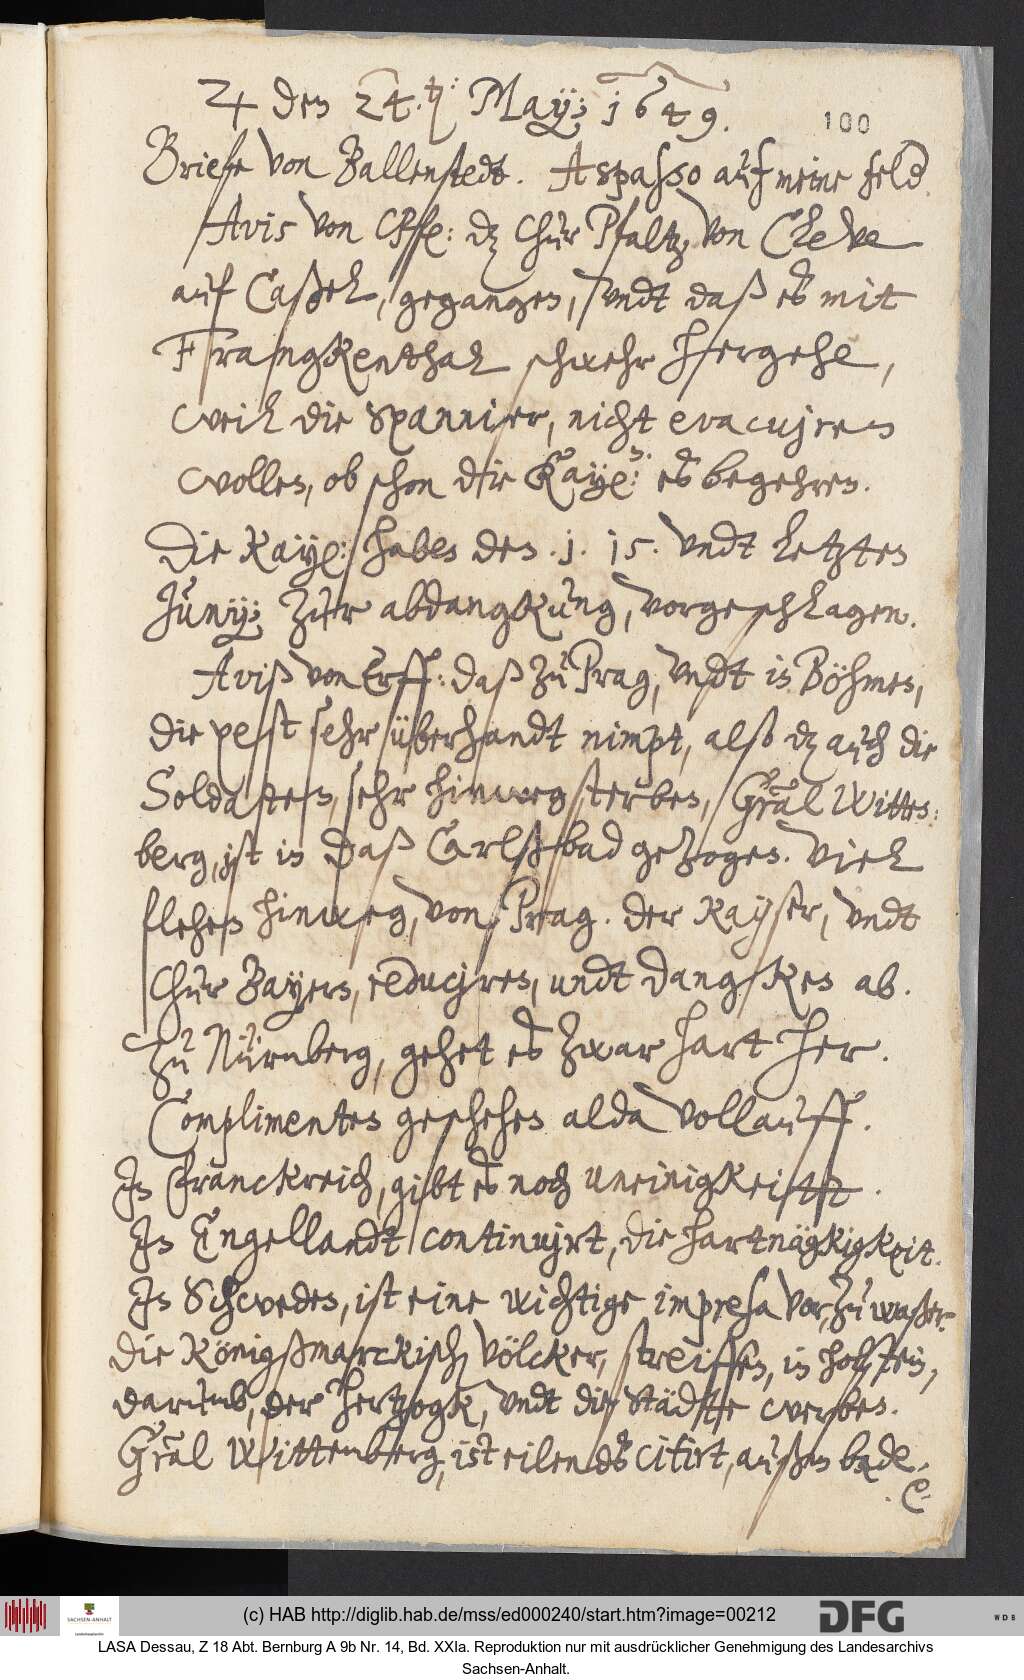 ♃ den 24.ten: May: 1649.
100
Briefe von Ballenstedt. A spasso auf meine feld
Avis von Caßel: dz Chur Pfaltz, von Cleve
auf Caßel, gegangen, undt daß es mit
Frangkenthal schwehr hergehe,
weil die Spannier, nicht evacujren
wollen, ob schon die Kayl: es begehren.
Die Kayl: haben den .1. 15. undt letzten
Junij; zur abdangkung, vorgeschlagen.
Aviß von Erff: daß zu Prag, undt in Böhmen,
die pest sehr überhandt nimpt, also dz auch die
Soldaten, sehr hinweg sterben, Gräl Witten:
berg, ist in daß Carlßbad gezogen. Viel
flehen hinweg, von Prag. der Kayser, undt
Chur Bayern, reducjren, undt dangken ab.
Zu Nürnberg, gehet es zwar hart her.
Complimenten geschehen alda vollauff.
In Franckreich, gibt es noch uneinigkeitt.
In Engellandt continujrt, die hartnägkigkeit.
In Schweden, ist eine wichtige impresa vor, zu waßer.
Die Königßmarckisch völcker, streiffen, in holstein,
darumb, der Hertzogk, undt die Städte werben.
Gräl Wittenberg, ist eilends citirt, außm bade.
(c) HAB http://diglib.hab.de/mss/ed000240/start.htm?image=00212
SACHSEN-ANHALT
DFG
WDB
LASA Dessau, Z 18 Abt. Bernburg A 9b Nr. 14, Bd. XXIa. Reproduktion nur mit ausdrücklicher Genehmigung des Landesarchivs
Sachsen-Anhalt.